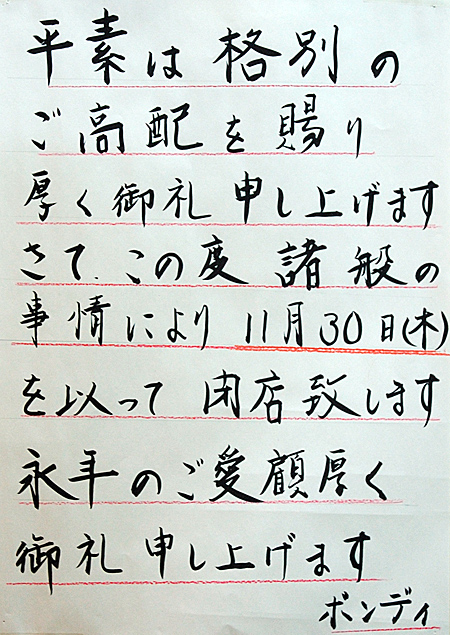 平素は格別の
ご高配を賜り
厚く御礼申し上げます
さて、この度諸般の
事情により11月30日(木)
を以って閉店致します
永年のご愛顧厚く
御礼申し上げます
ボンディ